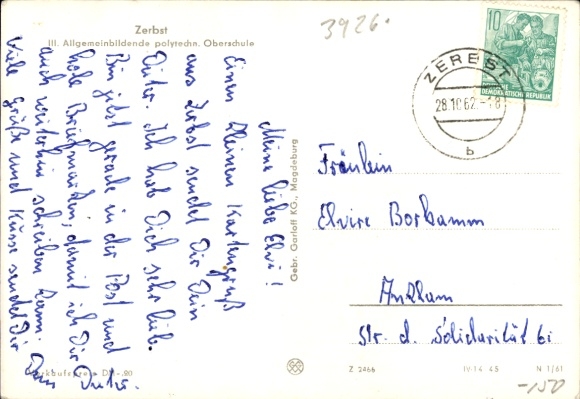 Zerbst
III. Allgemeinbildende polytechn. Oberschule
3926.
10
DEMOKRATISCHE REPUBLIK
ZERBST
28.10.62.-18
b
Meine liebe Elvi!
Einen kleinen Kartengruß
aus Zerbst sendet Dir Dein
Dieter. Ich hab Dich sehr lieb.
Bin jetzt gerade in der Post und
hole Briefmarken, damit ich Dir
auch weiterhin schreiben kann.
Viele Grüße und Küsse sendet Dir
Dein
Dieter.
Gebr. Garloff KG., Magdeburg
Fräulein
Elvire Borkamm
Anklam
Str. d. Solidarität 6i
Verkaufspreis DM -.20
Z 2466
IV-14-45
N 1/61
-150